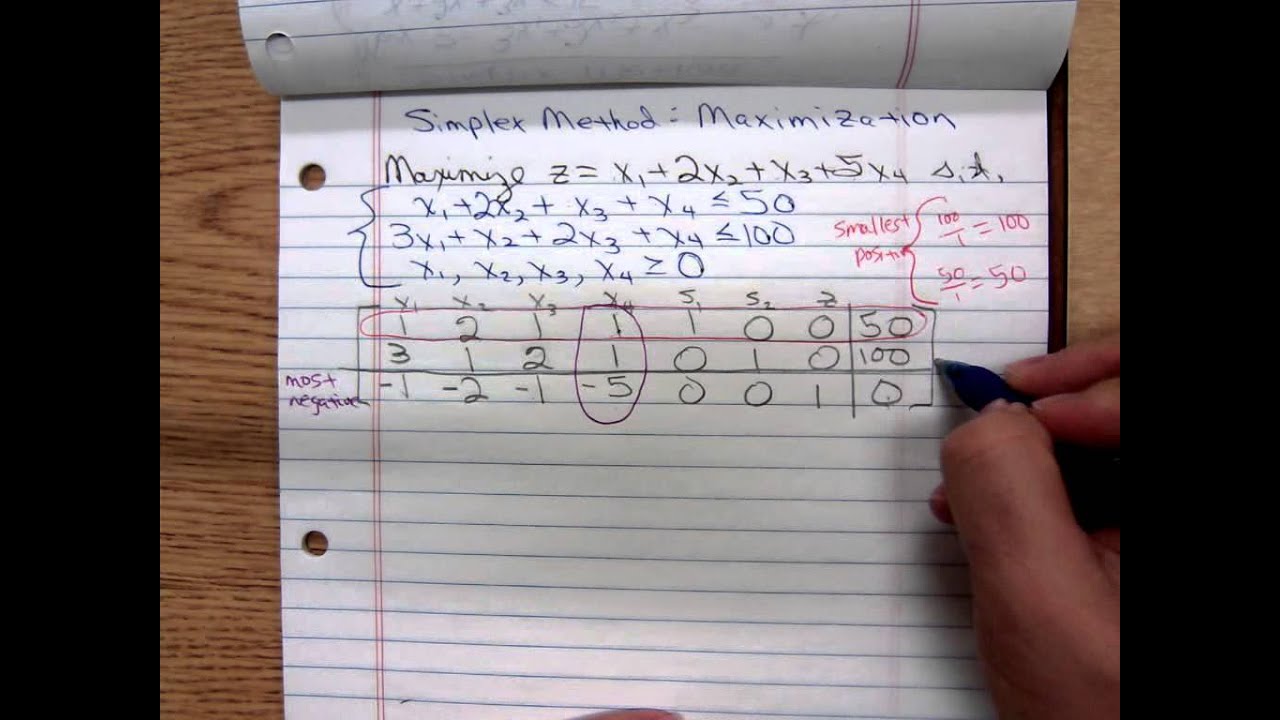 Simplex Method: Maximization
Maximize z = x₁ + 2x₂ + x₃ + 5x₄ s.t.
x₁ + 2x₂ + x₃ + x₄ ≤ 50
3x₁ + x₂ + 2x₃ + x₄ ≤ 100
x₁, x₂, x₃, x₄ ≥ 0
smallest
positive
100/1 = 100
50/1 = 50
x₁ x₂ x₃ x₄ s₁ s₂ z
1 2 1 1 1 0 0 50
3 1 2 1 0 1 0 100
-1 -2 -1 -5 0 0 1 0
most
negative